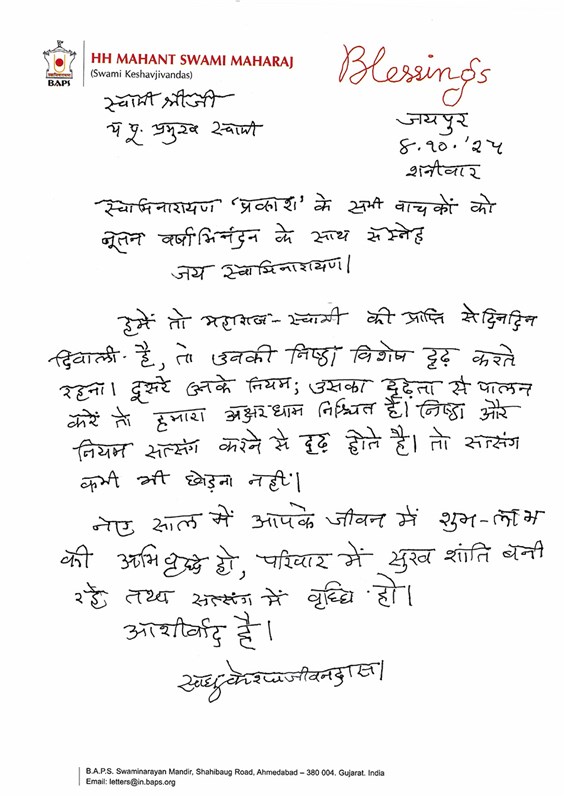 HH MAHANT SWAMI MAHARAJ
(Swami Keshavjivandas)
BAPS
Blessings
स्वामी श्रीजी
प पू. प्रमुख स्वामी
जयपुर
४.१०.'२५
शनीवार
स्वामिनारायण 'प्रकाश' के सभी वाचकों को
नूतन वर्षाभिनंदन के साथ सस्नेह
जय स्वामिनारायण।
हमें तो महाराज-स्वामी की प्राप्ति से दिनदिन
दिवाली है, तो उनकी निष्ठा विशेष दृढ़ करते
रहना। दूसरे उनके नियम; उसका दृढ़ता से पालन
करें तो हमारा अक्षरधाम निश्चित है। निष्ठा और
नियम सत्संग करने से दृढ़ होते है। तो सत्संग
कभी भी छोड़ना नहीं।
नए साल में आपके जीवन में शुभ-लाभ
की अभिवृद्धि हो, परिवार में सुख शांति बनी
रहे, तथा सत्संग में वृध्धि हो।
आशीर्वाद है।
साधु केशवजीवनदास।
B.A.P.S. Swaminarayan Mandir, Shahibaug Road, Ahmedabad – 380 004. Gujarat. India
Email: letters@in.baps.org